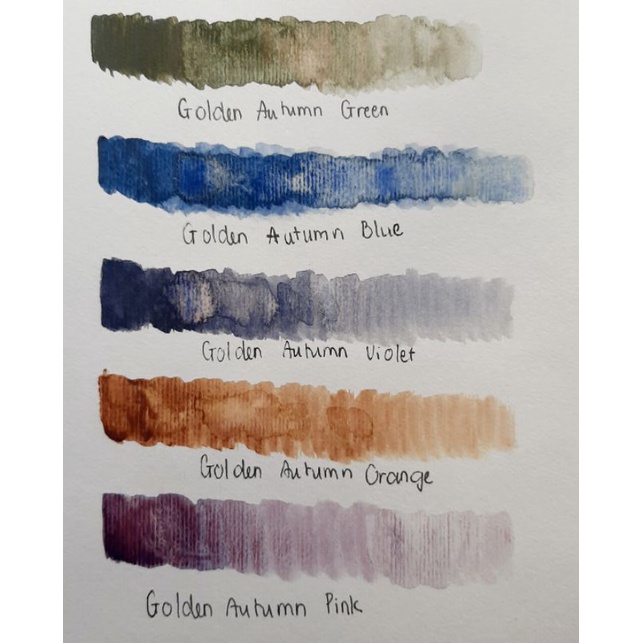 Golden Autumn Green
Golden Autumn Blue
Golden Autumn Violet
Golden Autumn Orange
Golden Autumn Pink